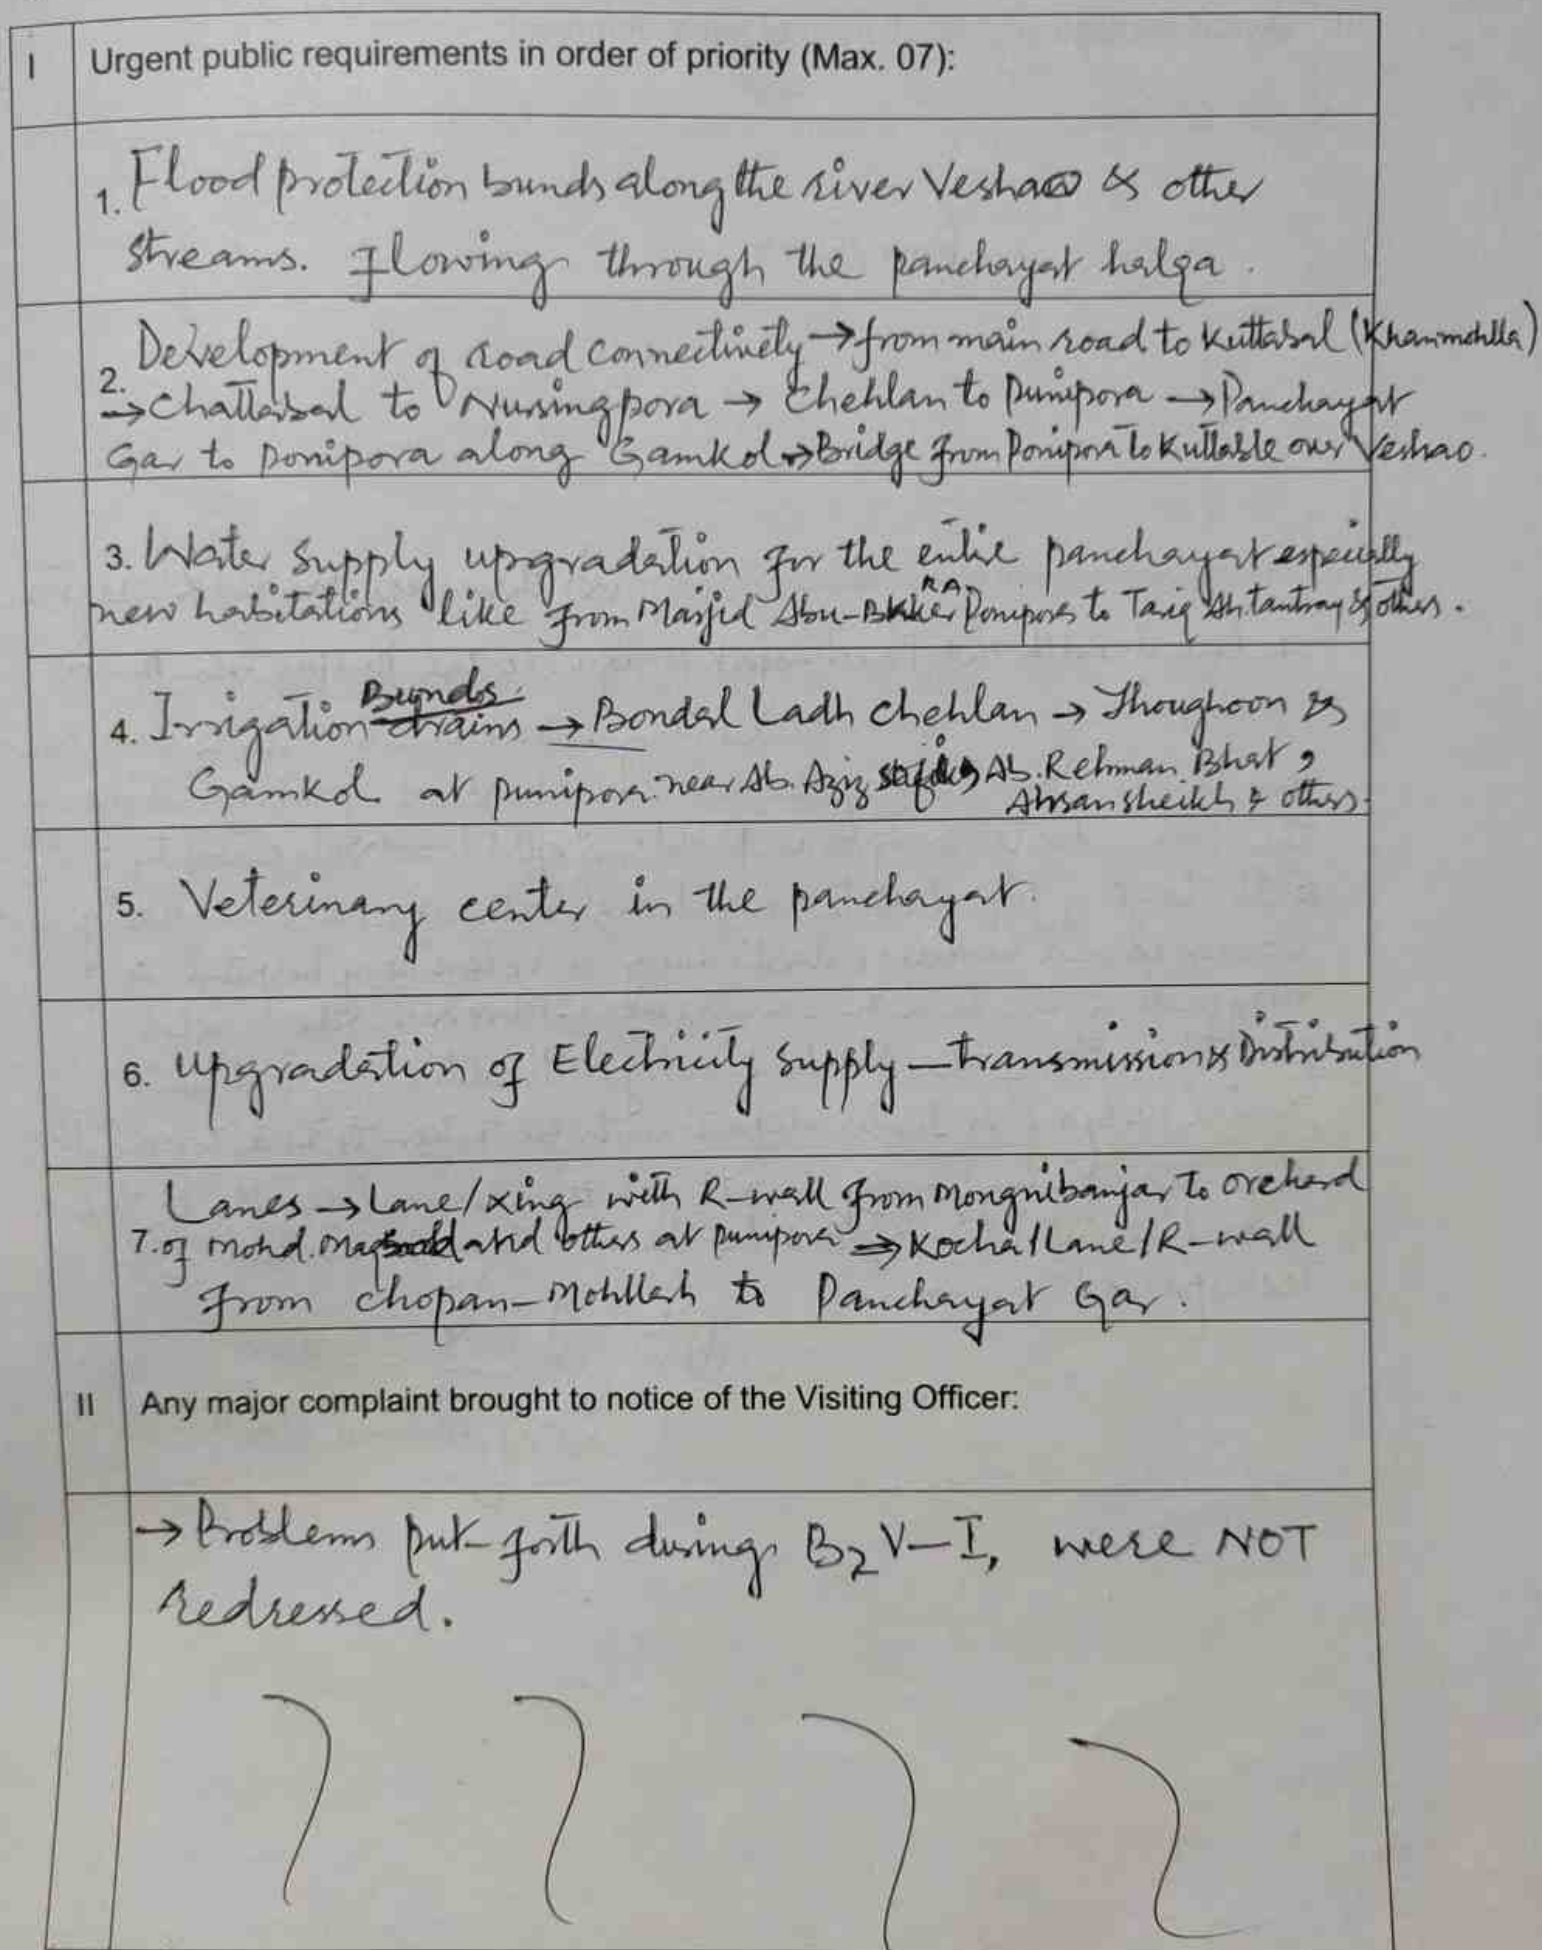 I Urgent public requirements in order of priority (Max. 07):
1. Flood protection bunds along the river Veshao & other
streams. Flowing through the panchayat halqa.
2. Development of road connectivety → from main road to Kuttabal (Khanmohlla)
→ Chattabal to Nursingpora → Chehlan to Punipora → Panchayat
Gar to Ponipora along Gamkol → Bridge from Ponipora to Kuttable over Veshao.
3. Water Supply upgradation for the entire panchayat especially
new habitations like from Masjid Abu-Bakker RA Ponipora to Tariq Ah. tantray & others.
4. Irrigation Bunds → Bondal Ladh Chehlan → Thoughoon &
Gamkol at punipora near Ab. Aziz Ab. Rehman Bhat,
Ahsan sheikh & others.
5. Veterinary center in the panchayat.
6. Upgradation of Electricity Supply – transmission & Distribution
Lanes → Lane/xing with R-wall from Mongnibanjar to orchard
7. of Mohd. and others at punipora ⇒ Kocha/Lane/R-wall
from chopan-Mohllah to Panchayat Gar.
II Any major complaint brought to notice of the Visiting Officer:
→ Problems put-forth during B2V-I, were NOT
redressed.